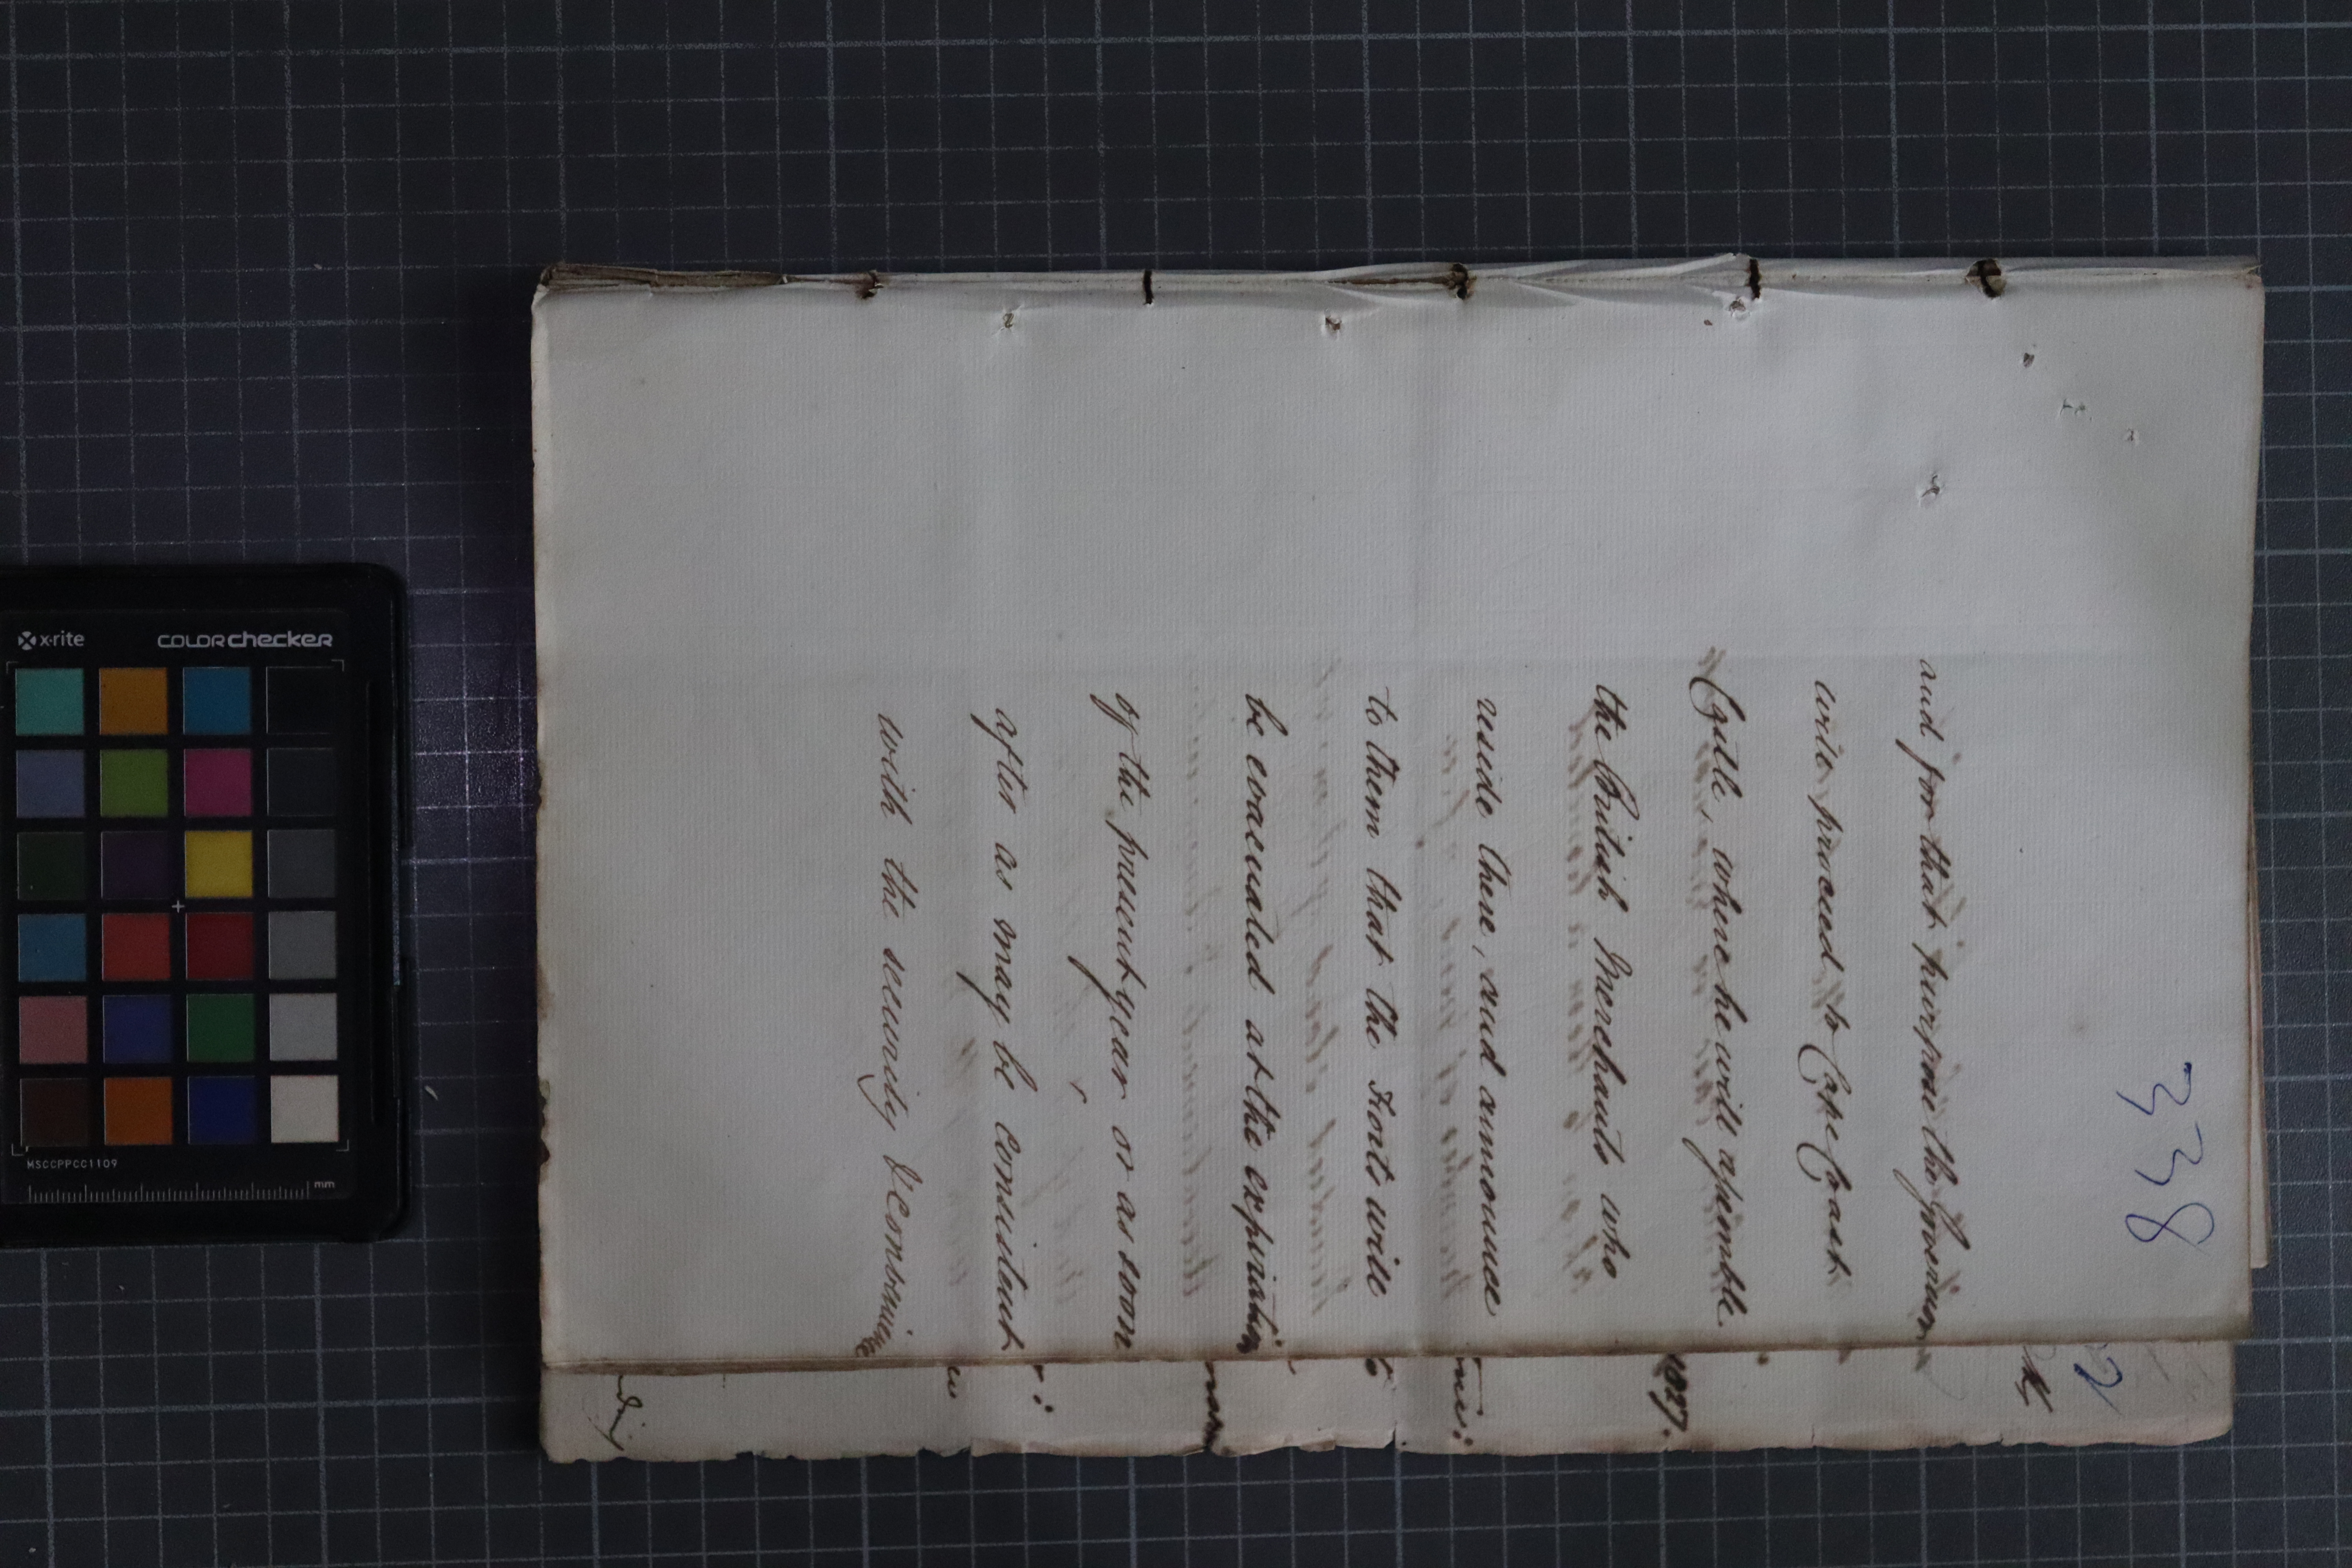 338
and for that purpose the Governor
will proceed to Cape Coast
Castle, where he will assemble
the British Merchants who
reside there, and announce
to them that the Forts will
be evacuated at the expiration
of the present year or as soon
after as may be consistent
with the security & convenience
2
1827.
x·rite
COLORchecker
MSCCPPCC1109
mm